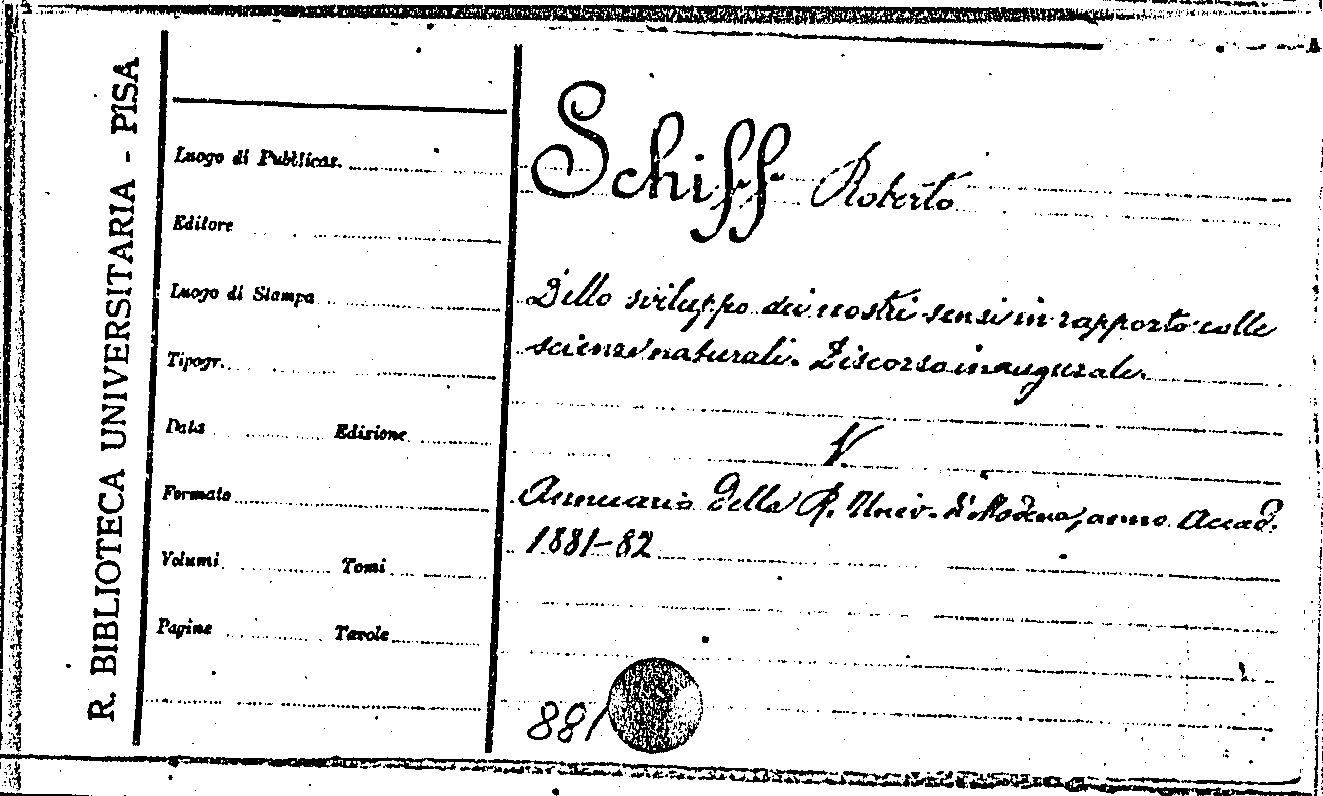 R. BIBLIOTECA UNIVERSITARIA - PISA
Luogo di Pubblicaz.
Editore
Luogo di Stampa
Tipogr.
Data Edizione
Formato
Volumi Tomi
Pagine Tavole
Schiff Roberto
Dello sviluppo dei nostri sensi in rapporto colle
scienze naturali. Discorso inaugurale.
V.
Annuario della R. Univ. di Modena, anno Accad.
1881-82
881